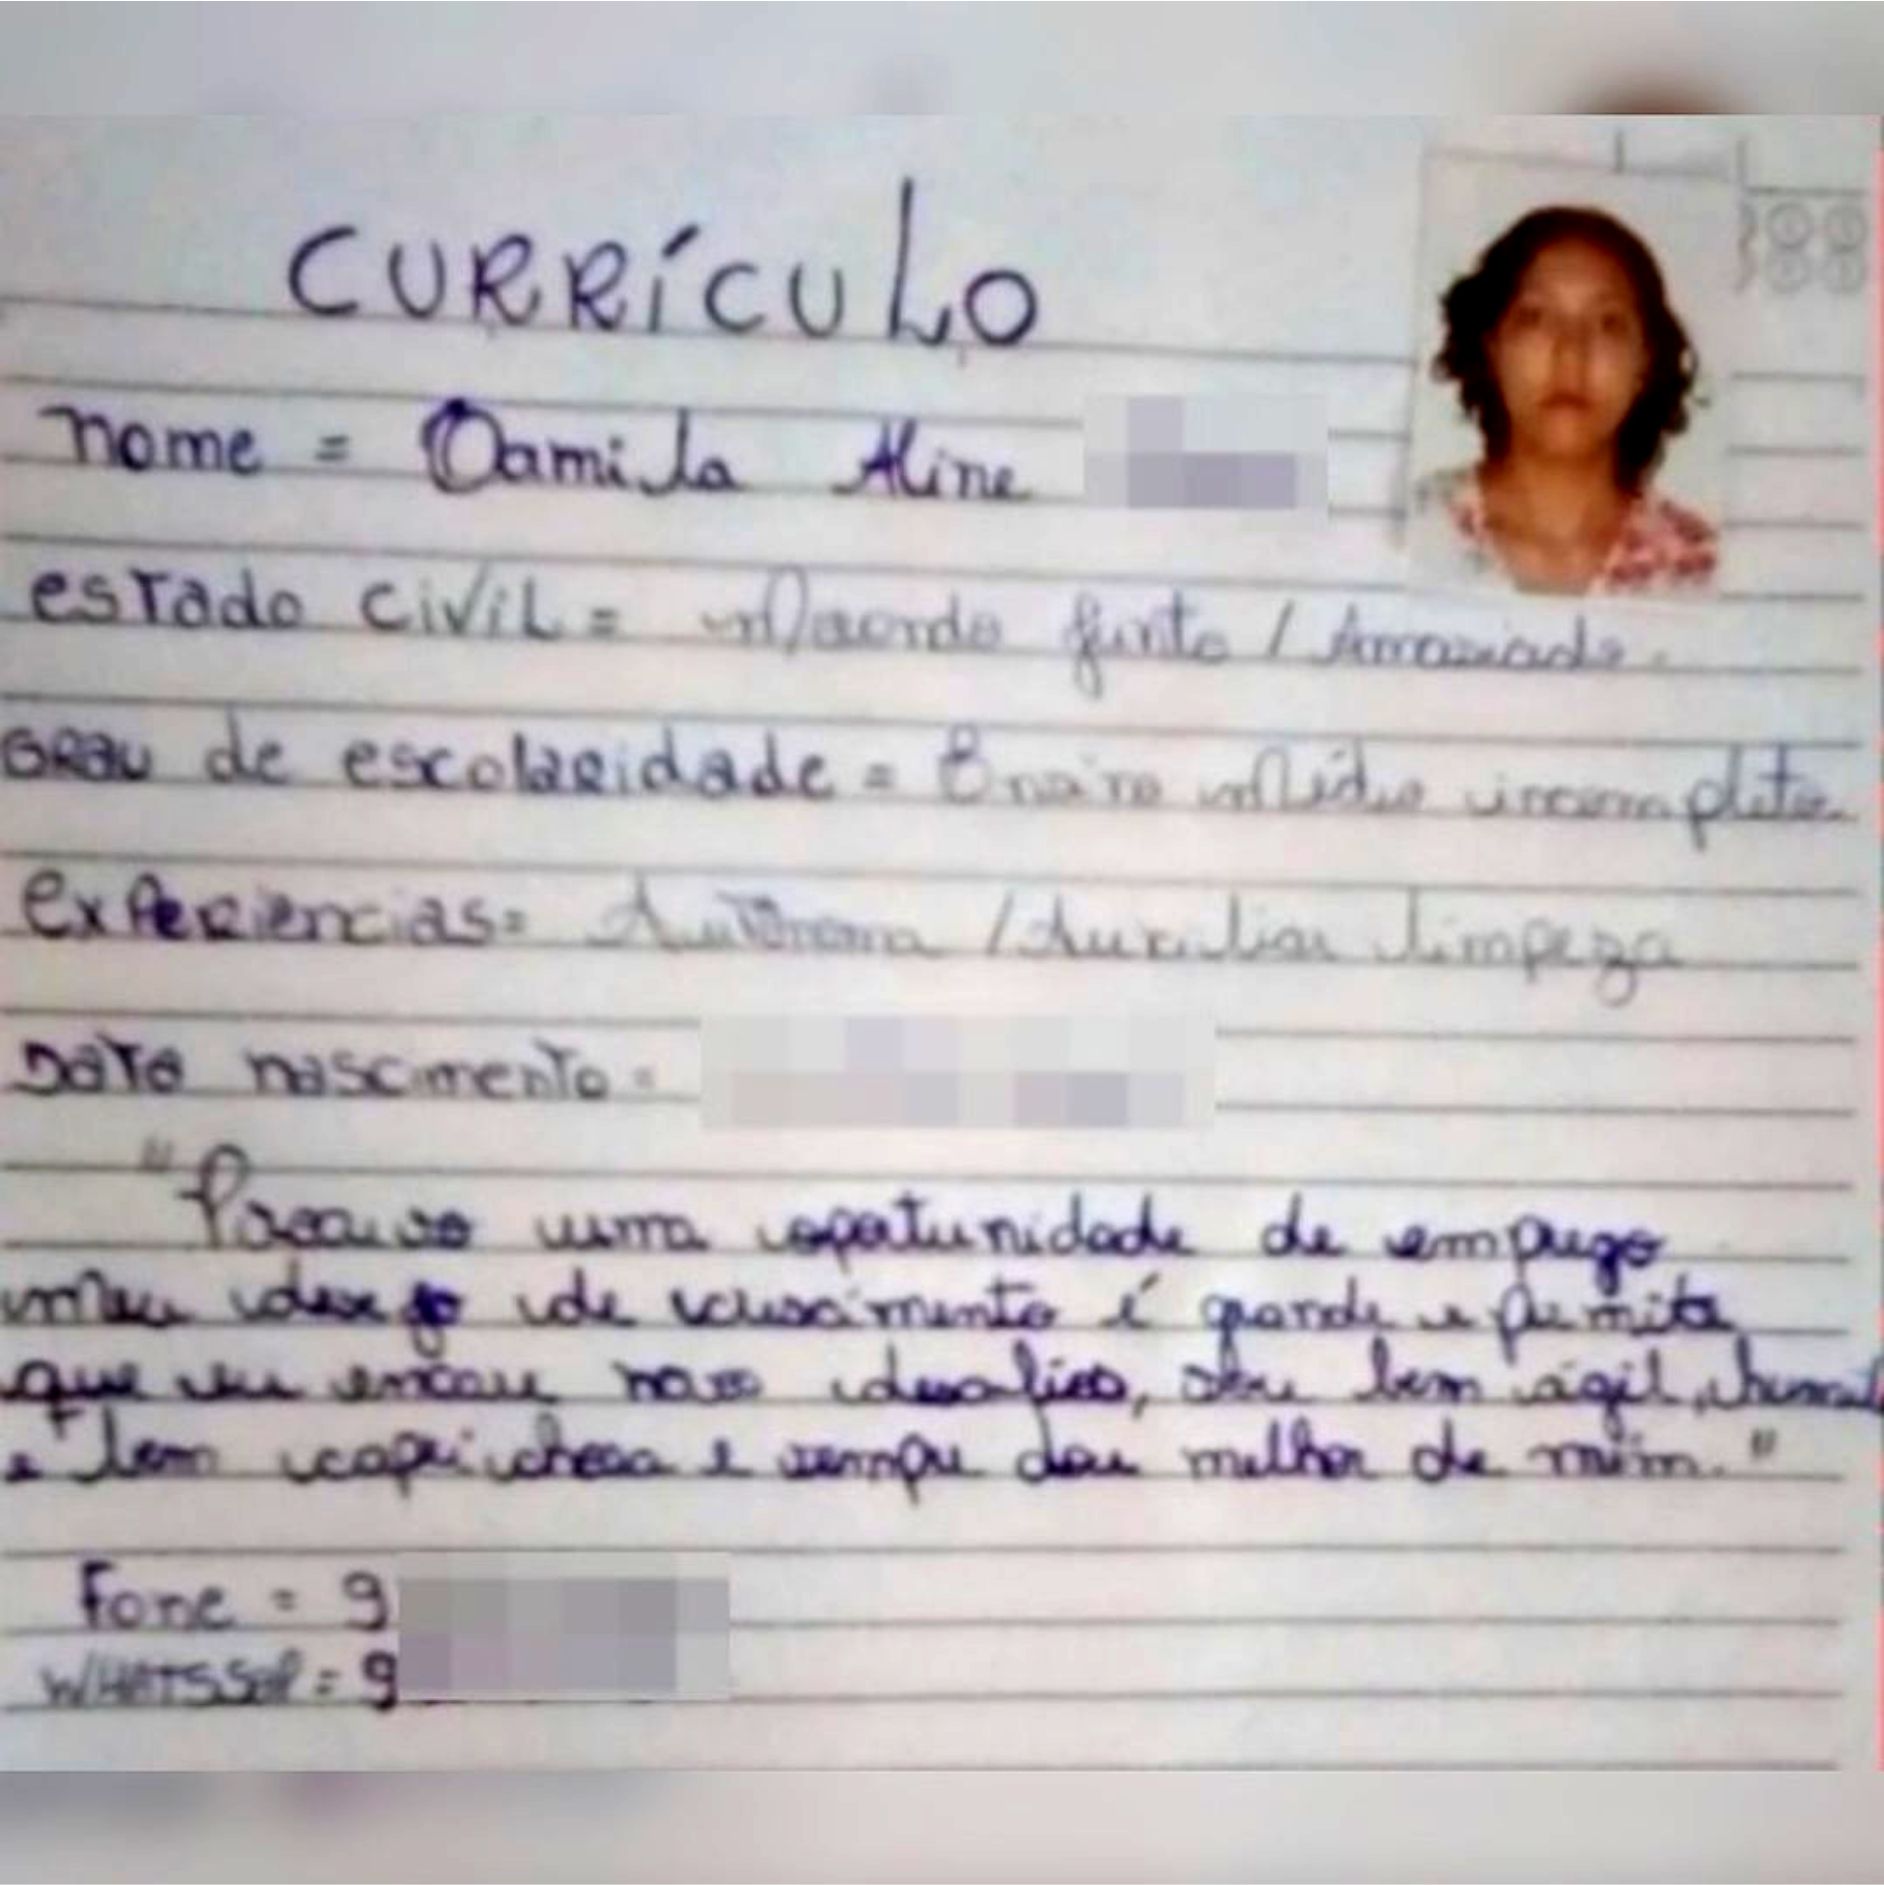 CURRÍCULO
nome = Damila Aline
estado civil = Morando junto / Amaziado.
Grau de escolaridade = Ensino Médio incompleto
experiencias = Autônoma / Auxiliar limpeza
Data nascimento =
"Procuro uma opotunidade de emprego
meu desejo de crescimento é grande e permita
que eu encare novo desafios, sou bem ágil, humil
e bem caprichosa e sempre dou melhor de mim."
Fone = 9
WHATSSAP = 9